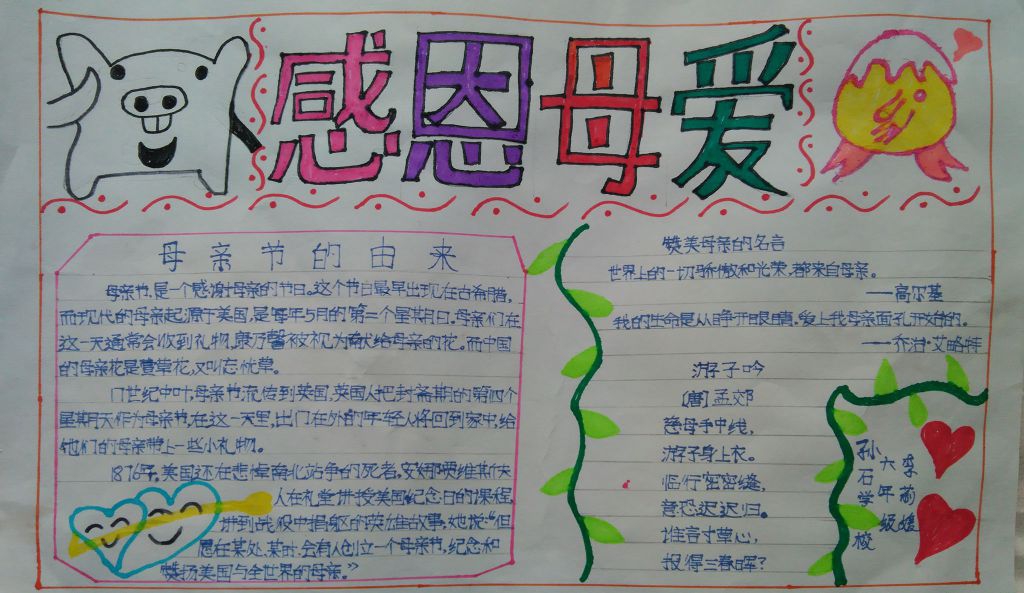 感恩母爱
母亲节的由来
母亲节,是一个感谢母亲的节日。这个节日最早出现在古希腊,
而现代的母亲起源于美国,是每年5月的第二个星期日。母亲们在
这一天通常会收到礼物,康乃馨被视为献给母亲的花。而中国
的母亲花是萱草花,又叫忘忧草。
17世纪中叶,母亲节流传到英国,英国人把封斋期的第四个
星期天作为母亲节,在这一天里,出门在外的年轻人将回到家中,给
他们的母亲带上一些小礼物。
1876年,美国还在悲悼南北站争的死者,安娜贾维斯夫
人在礼堂讲授美国纪念日的课程,
讲到战役中捐躯的英雄故事,她说:“但
愿在某处,某时,会有人创立一个母亲节,纪念和
赞扬美国与全世界的母亲。”
赞美母亲的名言
世界上的一切骄傲和光荣,都来自母亲。
——高尔基
我的生命是从睁开眼睛,爱上我母亲面孔开始的。
——乔治·艾略特
游子吟
(唐)孟郊
慈母手中线,
游子身上衣。
临行密密缝,
意恐迟迟归。
谁言寸草心,
报得三春晖?
孙石学校
六年级
李萌媛